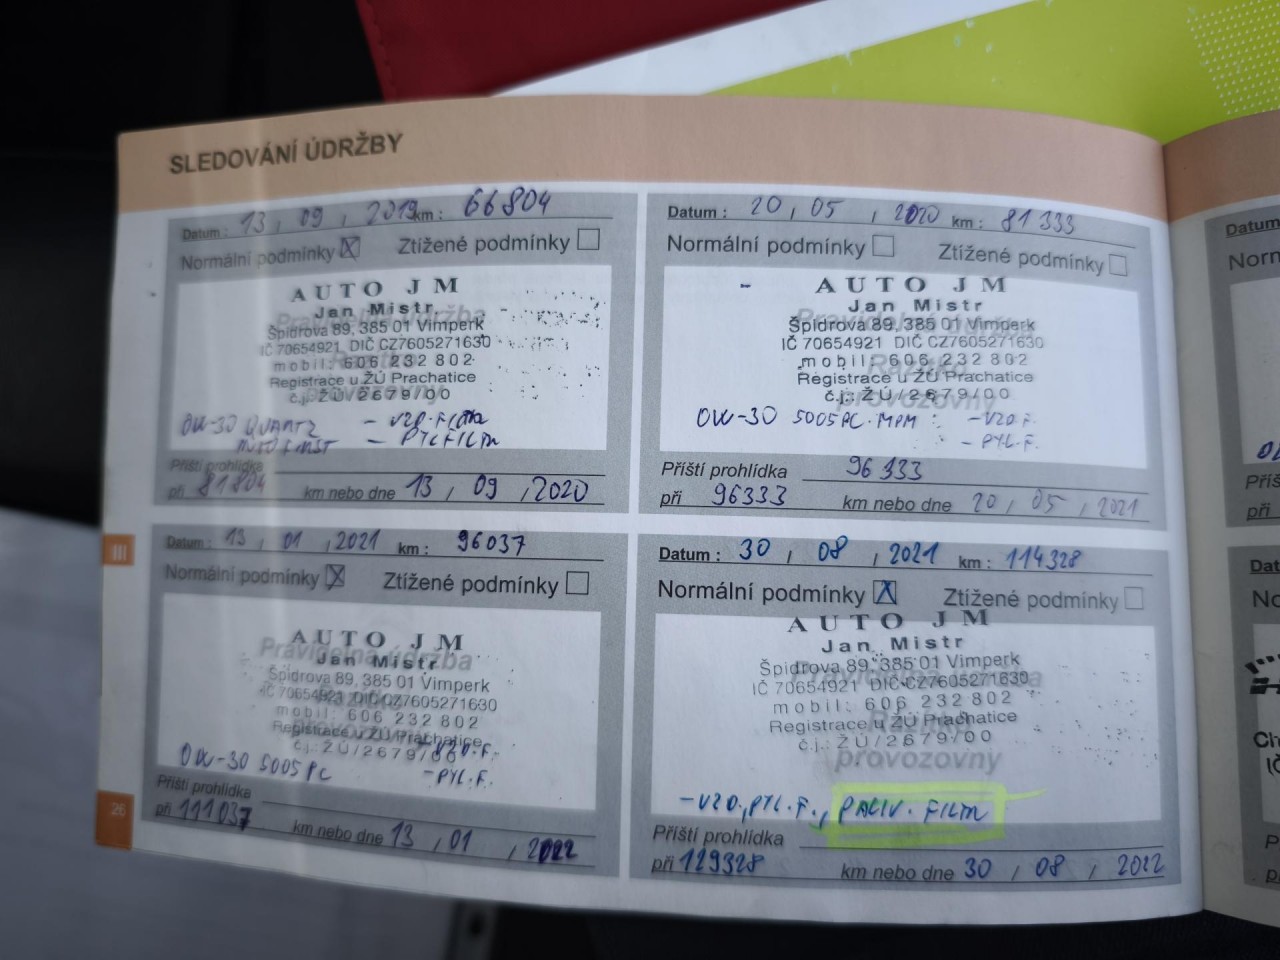 SLEDOVÁNÍ ÚDRŽBY
Datum : 13, 09, 2019 km : 66804
Normální podmínky X Ztížené podmínky
AUTO JM
Jan Mistr
Pravidelná údržba
Špidrova 89, 385 01 Vimperk
IČ 70654921 DIČ CZ7605271630
mobil: 606 232 802
Registrace u ŽÚ Prachatice
č.j.: ŽÚ/2679/00
provozovny
0W-30 QUARTZ - VZD. FILTR
INEO FIRST - PYL FILTR
Příští prohlídka
při 81804 km nebo dne 13, 09, 2020
Datum : 20, 05, 2020 km : 81333
Normální podmínky Ztížené podmínky
AUTO JM
Jan Mistr
Pravidelná údržba
Špidrova 89, 385 01 Vimperk
IČ 70654921 DIČ CZ7605271630
mobil: 606 232 802
Razítko
Registrace u ŽÚ Prachatice
č.j.: ŽÚ/2679/00
provozovny
0W-30 5005 PC. MPM : - VZD F.
- PYL. F.
Příští prohlídka 96 333
při 96333 km nebo dne 20, 05, 2021
Datum : 13, 01, 2021 km : 96037
Normální podmínky X Ztížené podmínky
AUTO JM
Pravidelná údržba
Jan Mistr
Špidrova 89, 385 01 Vimperk
IČ 70654921 DIČ CZ7605271630
mobil: 606 232 802
Registrace u ŽÚ Prachatice
provozovny
č.j.: ŽÚ/2679/00 - VZD. F.
0W-30 5005 PC - PYL. F.
Příští prohlídka
při 111037 km nebo dne 13, 01, 2022
Datum : 30, 08, 2021 km : 114328
Normální podmínky X Ztížené podmínky
AUTO JM
Jan Mistr
Špidrova 89, 385 01 Vimperk
Pravidelná údržba
IČ 70654921 DIČ CZ7605271630
mobil: 606 232 802
Registrace u ŽÚ Prachatice
Razítko
č.j.: ŽÚ/2679/00
provozovny
- VZD, PYL. F., PALIV. FILTR
Příští prohlídka
při 129328 km nebo dne 30, 08, 2022
III
26
Datum